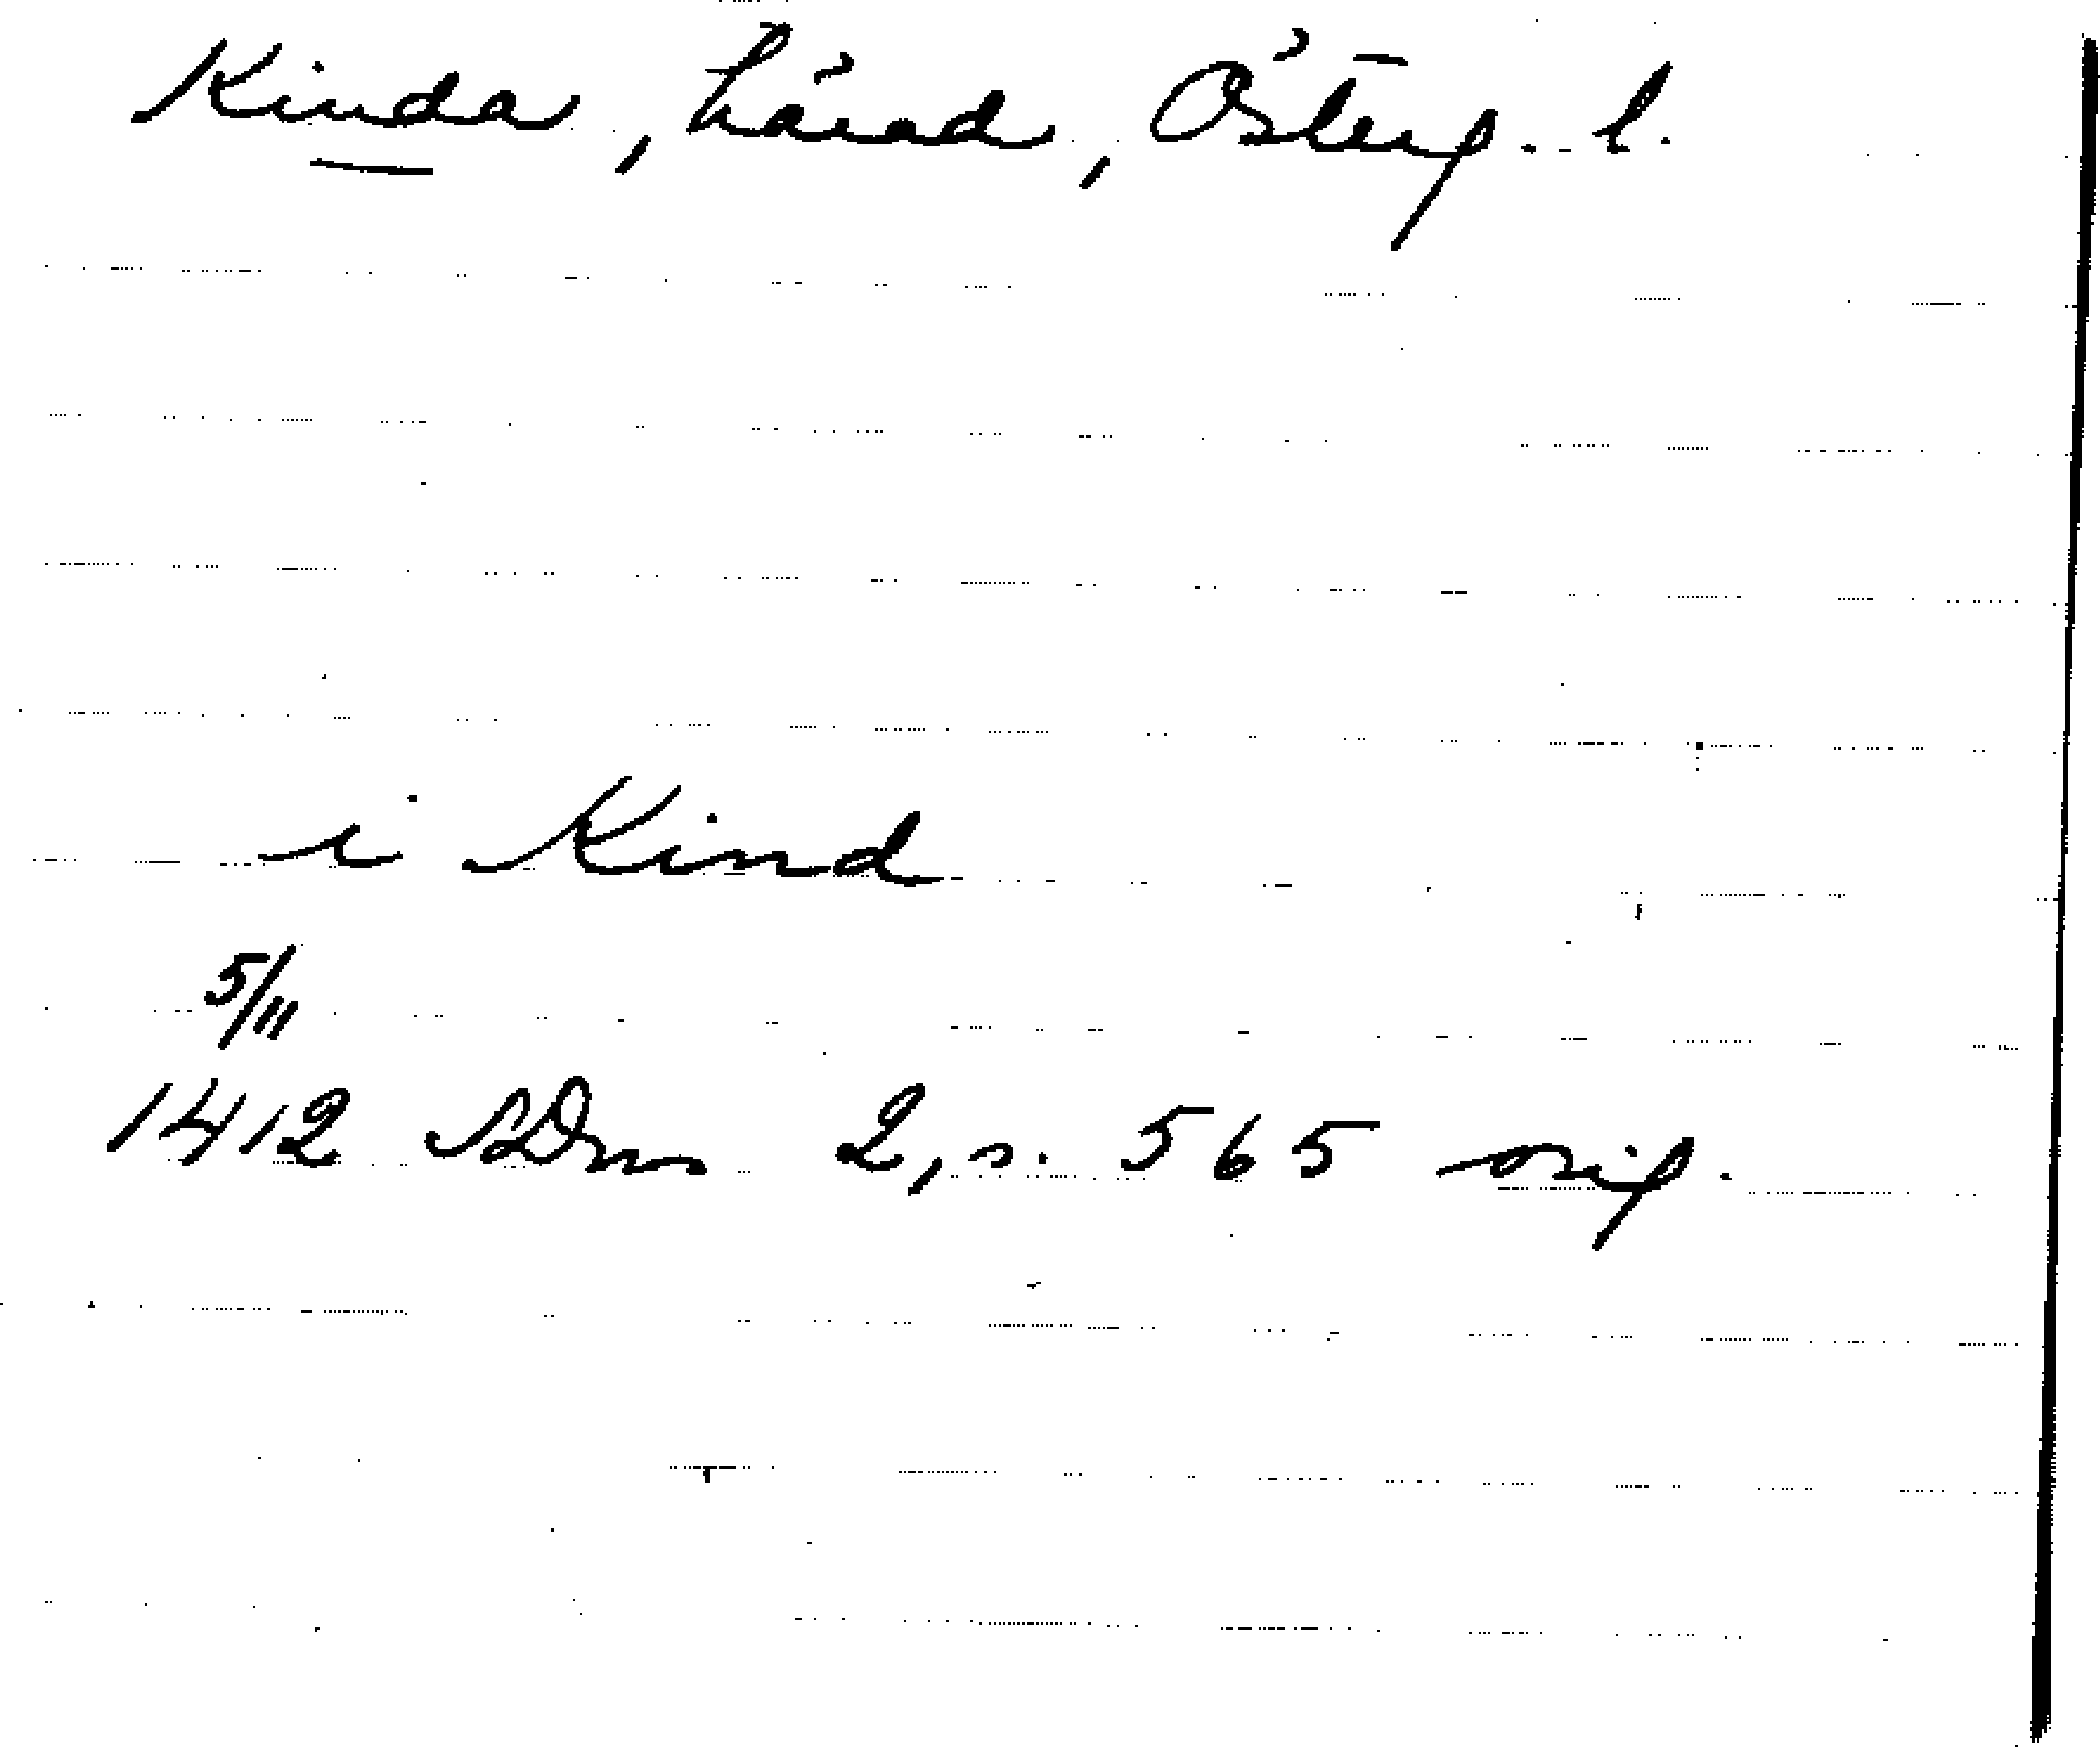 Kinda, härad, Österg. l.
i Kind
5/11
1412 SDns 2, s. 565 orig.